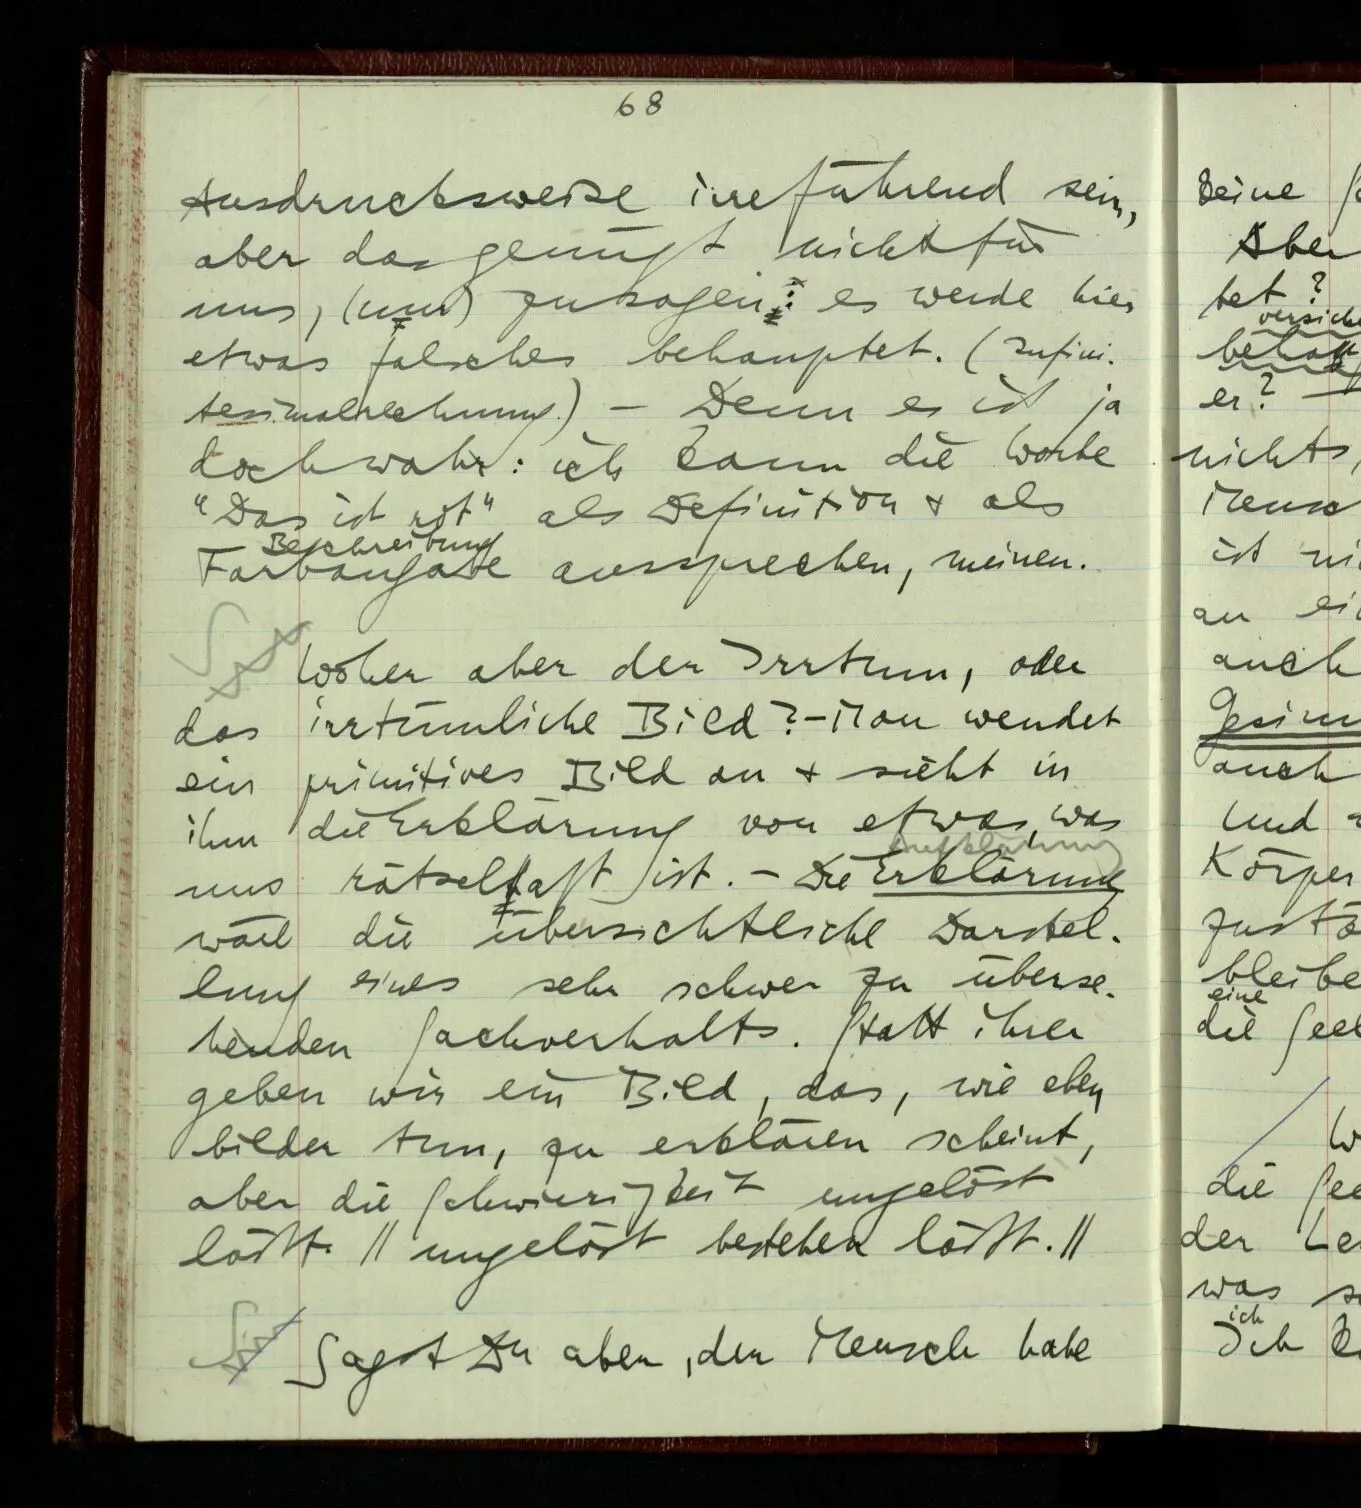 68
Ausdrucksweise irreführend sein,
aber das genügt nicht für
uns, (um) zu sagen: es werde hier
etwas falsches behauptet. (Infini-
tesimalrechnung.) – Denn es ist ja
doch wahr: ich kann die Worte
"Das ist rot" als Definition & als
Beschreibung
Farbangabe aussprechen, meinen.
Woher aber der Irrtum, oder
das irrtümliche Bild? – Man wendet
ein primitives Bild an & sieht in
ihm die Erklärung von etwas, was
Aufklärung
uns rätselhaft ist. – Die Erklärung
wäre die übersichtliche Darstel-
lung eines sehr schwer zu überse-
henden Sachverhalts. Statt ihrer
geben wir ein Bild, das, wie eben
bilder tun, zu erklären scheint,
aber die Schwierigkeit ungelöst
läßt. || ungelöst bestehen läßt. ||
Sagst Du aber, der Mensch habe
Deine
Aber
tet?
er? –
nichts,
Mensch
ist
an
auch
auch
Und
Körper
bleibe
eine
die
die
der
was
ich
Ich